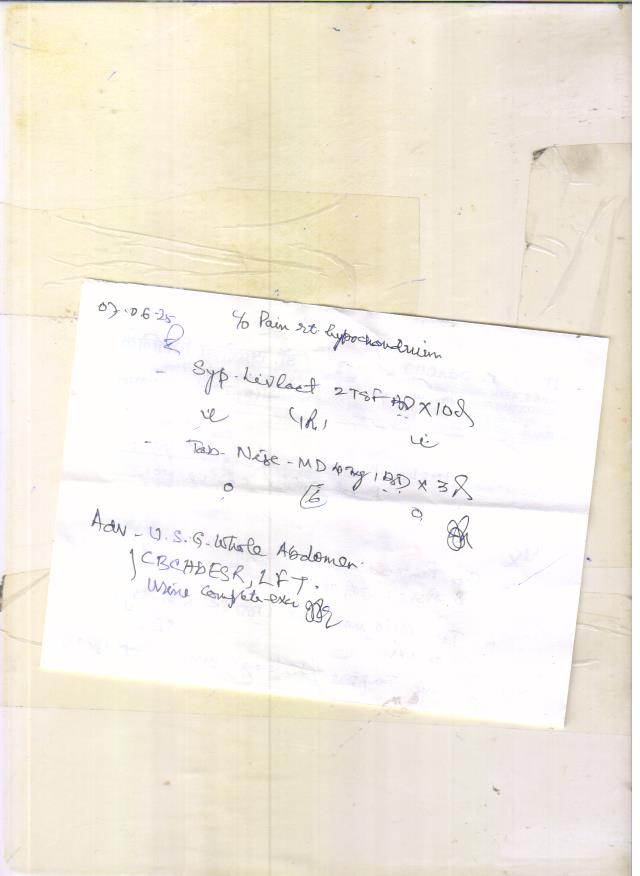 07.06.25
c/o Pain rt. hypochondrium
- Syp. Livlact 2TSF BD X 10d
(1h)
- Tab- Nise-MD 1 BD x 3d
Adv - U.S.G. Whole Abdomen.
CBC, ESR, LFT.
Urine Complete exa